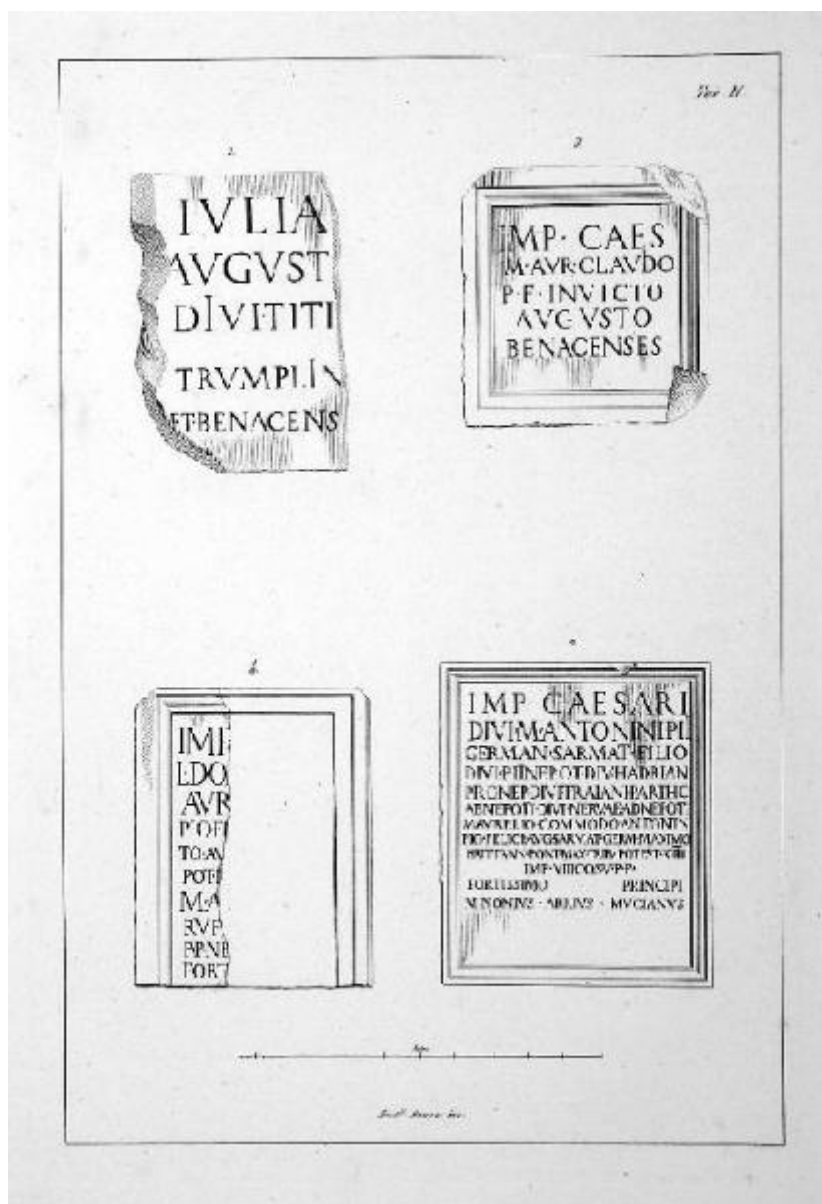 Tav. II.
1.
IVLIA
AVGVST
DIVI·TITI
TRVMPLIN
ET·BENACENS
IMP· CAES
M·AVR·CLAVDO
P·F·INVICTO
AVGVSTO
BENACENSES
IMP
L·DO
AVR
TO·AV
POT·
M·A
RVF
FORT
IMP CAESARI
DIVI·M·ANTONINI·PII
GERMAN·SARMAT·FILIO
DIVI·PII·NEPOT·DIVI·HADRIAN
PRONEP·DIVI·TRAIANI·PARTHC
ABNEPOTI·DIVI·NERVAE·ADNEPOT
M·AVRELIO·COMMODO·ANTONIN
PIO·FELICI·AVG·SARMAT·GERM·MAXIMO
IMP·VIII·COS·V·P·P·
FORTISSIMO PRINCIPI
M·NONIVS · ARRIVS · MVCIANVS